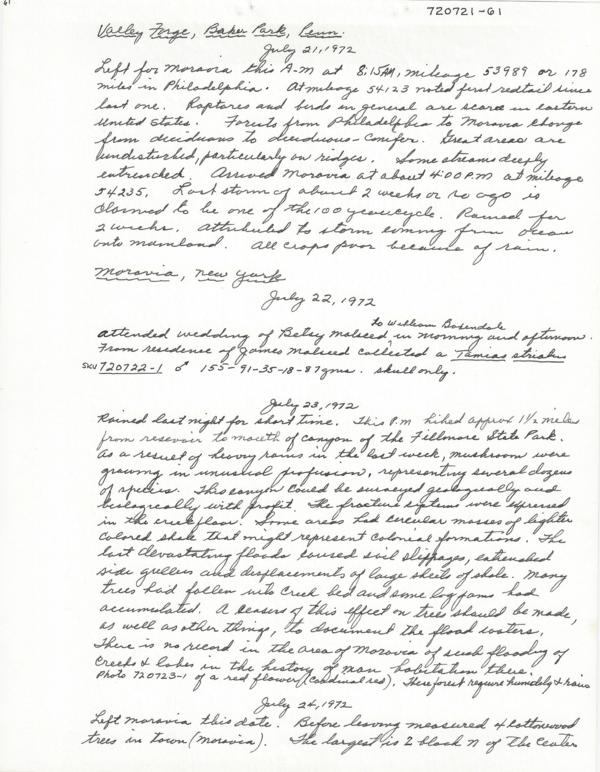 61
720721-61
Valley Forge, Baker Park, Penn.
July 21, 1972
Left for Moravia this A-M at 8:15AM, mileage 53989 or 178
miles in Philadelphia. At mileage 54123 noted first redtail since
last one. Raptores and birds in general are scarce in eastern
United States. Forests from Philadelphia to Moravia change
from deciduous to deciduous-conifer. Great areas are
undisturbed, particularly on ridges. Some streams deeply
entrenched. Arrived Moravia at about 4:00 P.M at mileage
54235. Last storm of about 2 weeks or so ago is
claimed to be one of the 100 year cycle. Rained for
2 weeks. Attributed to storm coming from ocean
onto mainland. All crops poor because of rain.
Moravia, New York
July 22, 1972
to William Bosendale
Attended wedding of Betsy Malseed in morning and afternoon.
From residence of James Malseed collected a Tamias striatus
SKU 720722-1 ♂ 155-91-35-18-87gms. skull only.
July 23, 1972
Rained last night for short time. This P.M hiked approx 1½ miles
from resevoir to mouth of canyon of the Fillmore State Park.
As a result of heavy rains in the last week, mushroom were
growing in unusual profusion, representing several dozens
of species. This canyon could be surveyed geologically and
biologically with profit. The fracture systems were expressed
in the creek floor. Some areas had circular masses of lighter
colored shale that might represent colonial formations. The
last devastating floods caused soil slippages, entrenched
side gullies and displacements of large sheets of shale. Many
trees had fallen into creek bed and some log jams had
accumulated. A of this effect on trees should be made,
as well as other things, to document the flood waters.
There is no record in the area of Moravia of such flooding of
creeks & lakes in the history of man habitation there.
Photo 720723-1 of a red flower (cardinal red). These forest require humidity & rains
July 24, 1972
Left Moravia this date. Before leaving measured 4 cottonwood
trees in town (Moravia). The largest is 2 block N of the center